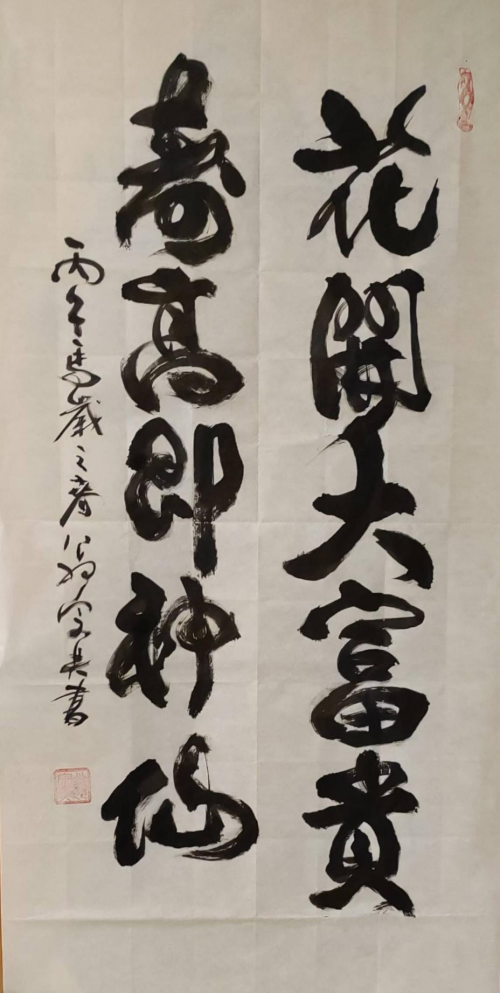 花開大富貴
壽高即神仙
丙午馬歲之春書